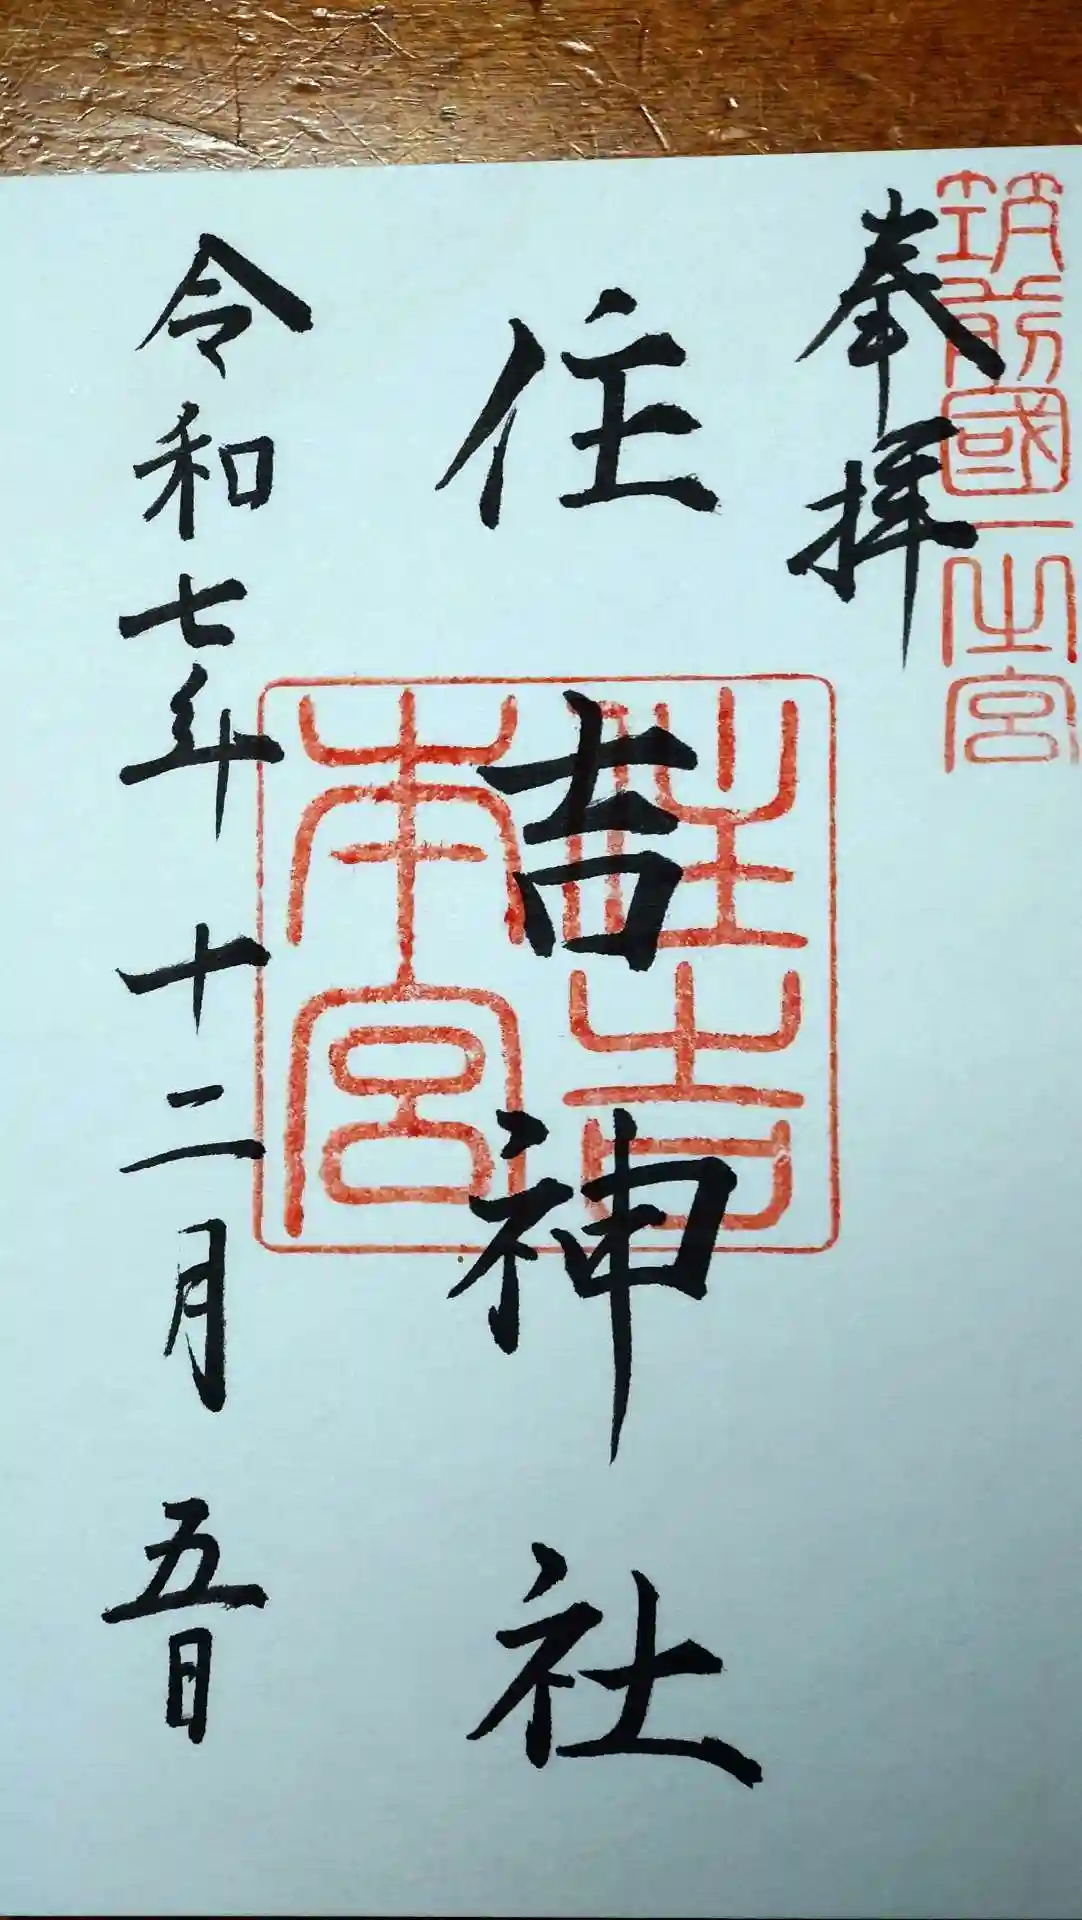 筑前國一之宮
奉拝
住吉神社
住吉
本宮
令和七年十二月五日